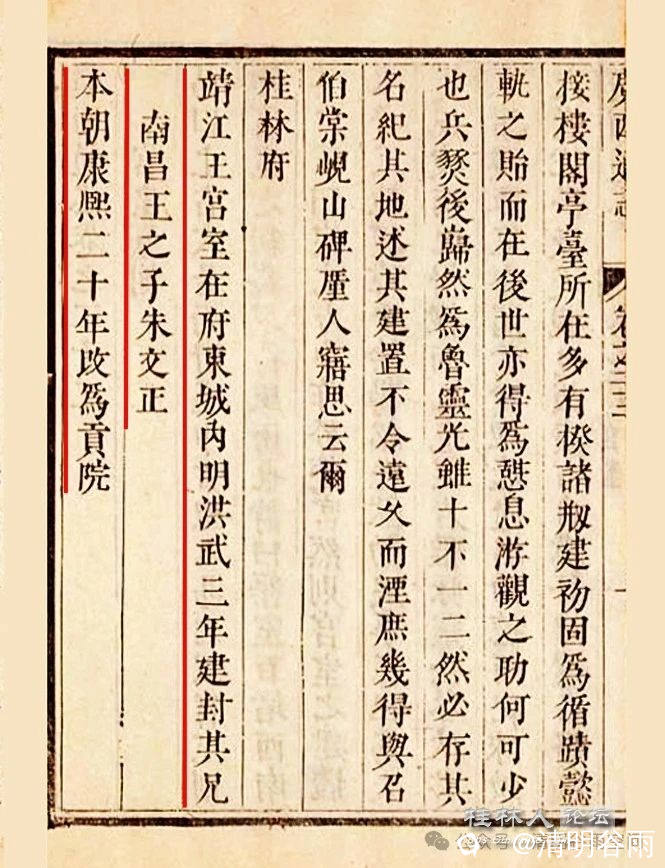 廣西通志
接樓閣亭臺所在多有揆諸剏建初固爲循蹟懿
軌之貽而在後世亦得爲憇息游觀之助何可少
也兵燹後巋然爲魯靈光雖十不一二然必存其
名紀其地述其建置不令遠久而湮庶幾得與召
伯棠峴山碑厪人寤思云爾
桂林府
靖江王宮室在府東城內明洪武三年建封其兄
南昌王之子朱文正
本朝康熙二十年改爲貢院
桂林人论坛
公众号
@清明谷雨